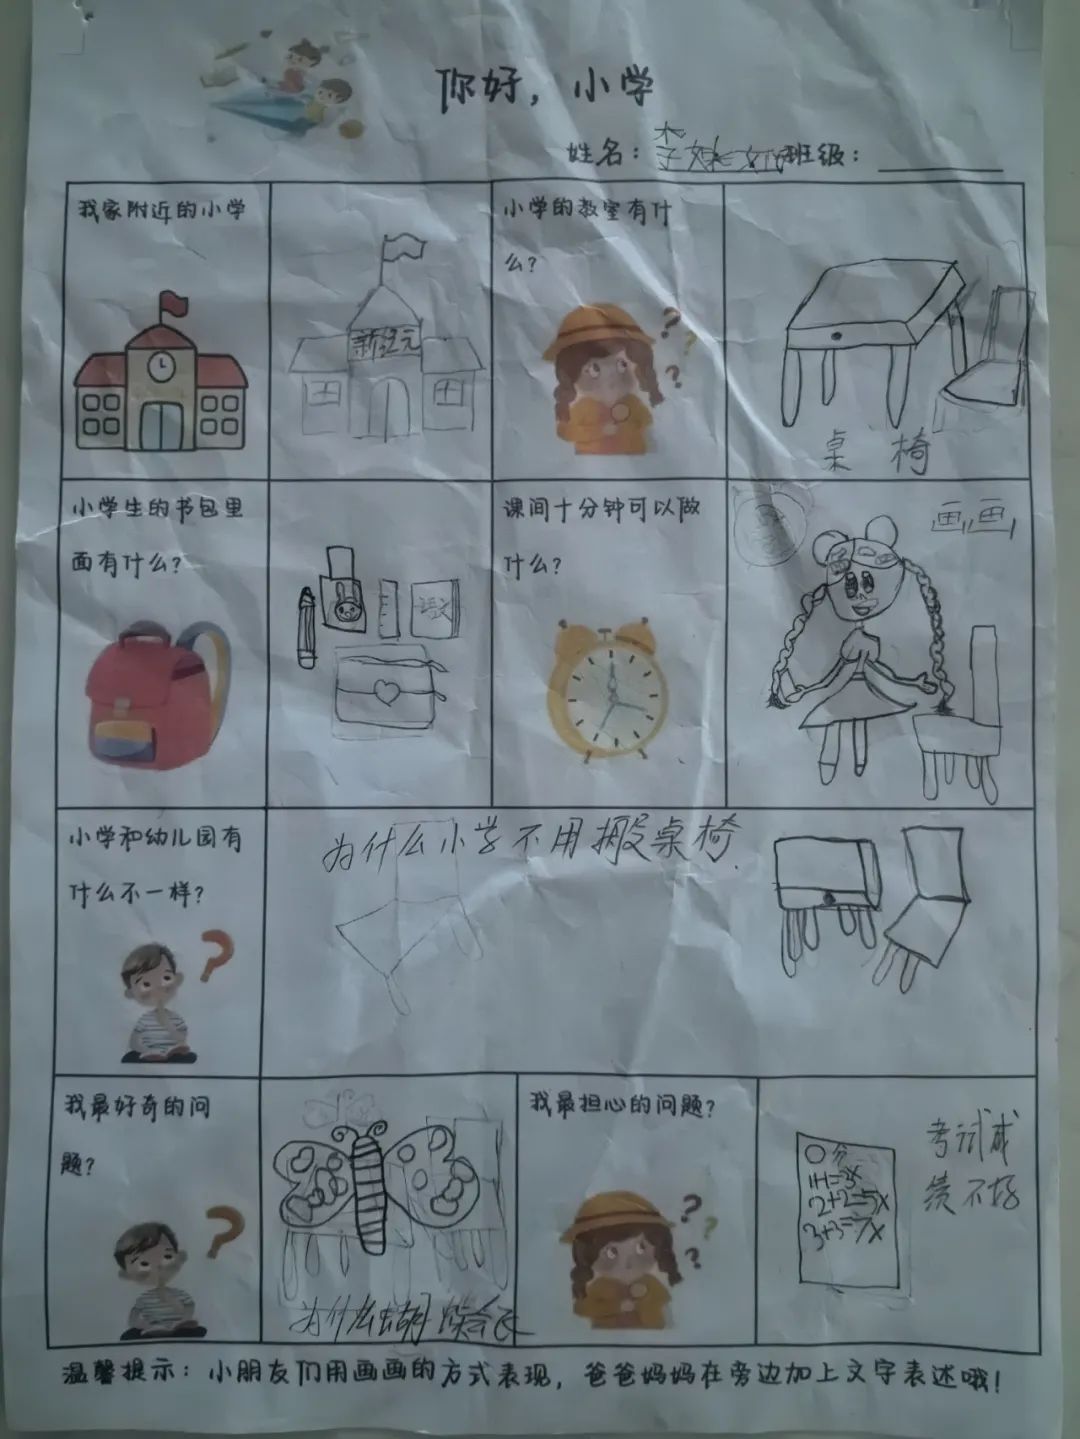 你好，小学
姓名：李
班级：
我家附近的小学
新纪元
小学的教室有什
么？
桌 椅
小学生的书包里
面有什么？
语文
课间十分钟可以做
什么？
画画
小学和幼儿园有
什么不一样？
为什么小学不用搬桌椅
我最好奇的问
题？
为什么蝴蝶会飞
我最担心的问题？
0分
1+1=3x
2+2=5x
3+3=7x
考试成
绩不好
温馨提示：小朋友们用画画的方式表现，爸爸妈妈在旁边加上文字表述哦！